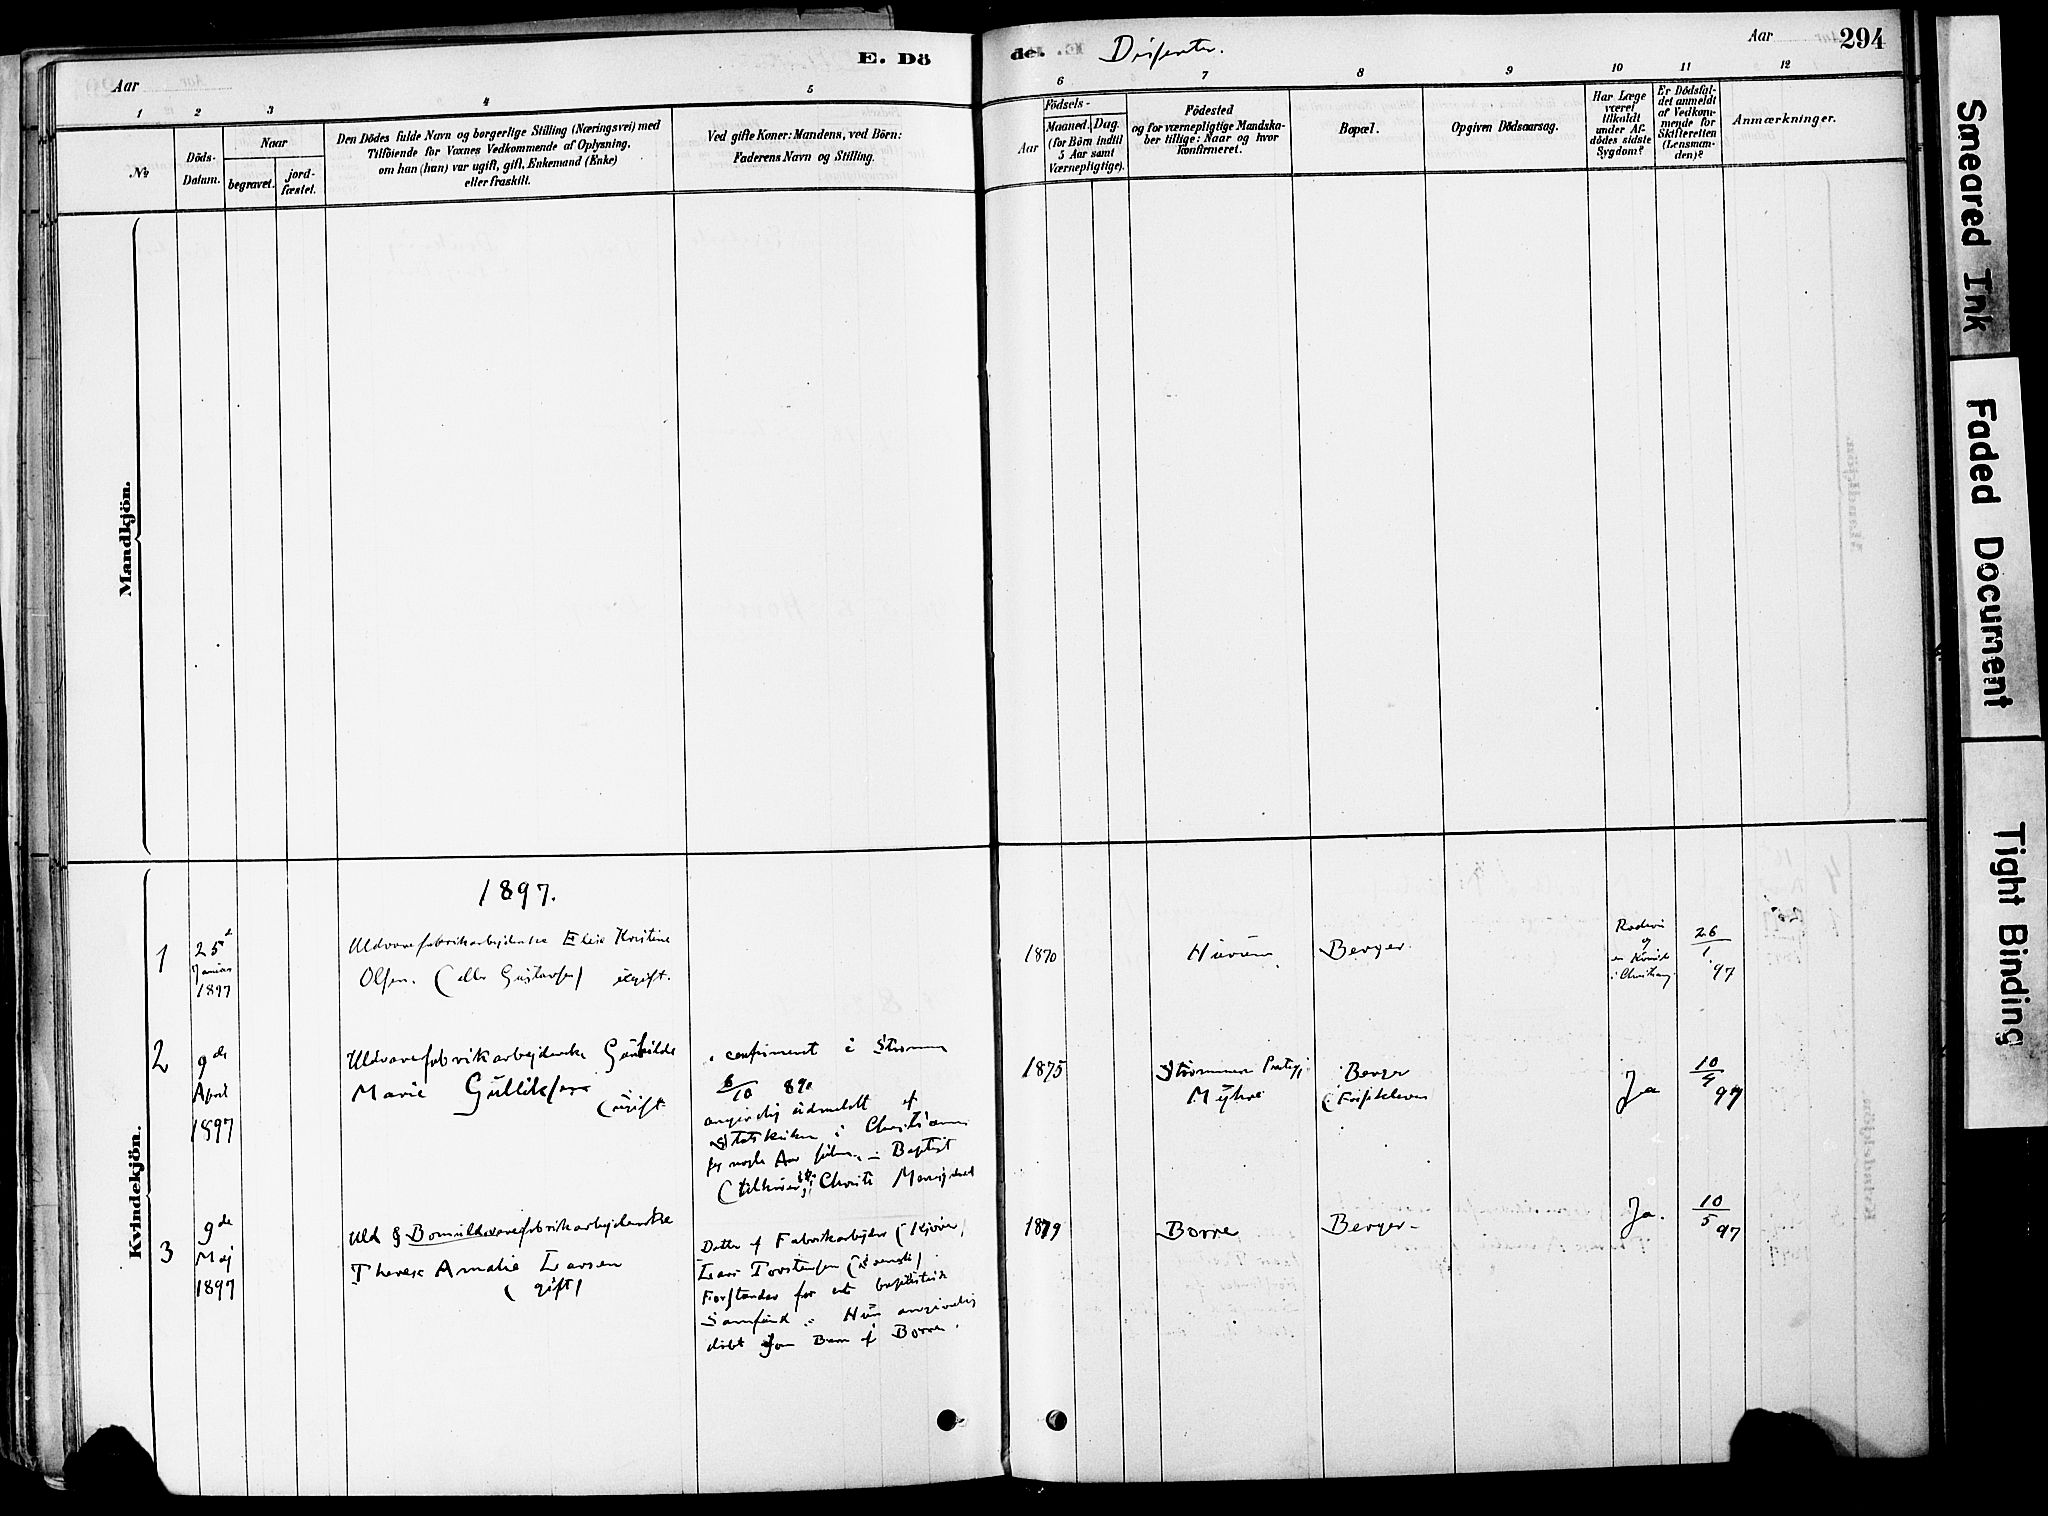 E. Döde. Dissenter.
Aar
Aar
294
1 2 3 4 5 6 7 8 9 10 11 12
No
Döds-
Datum.
Naar
begravet.
jord-
fæstet.
Den Dödes fulde Navn og borgerlige Stilling (Næringsvei) med
Tilföiende for Voxnes Vedkommende af Oplysning,
om han (hun) var ugift, gift, Enkemand (Enke)
eller fraskilt.
Ved gifte Koner: Mandens, ved Börn:
Faderens Navn og Stilling.
Födsels-
Aar
Maaned. Dag.
(for Börn indtil
5 Aar samt
Værnepligtige).
Födested
og for værnepligtige Mandska-
ber tillige: Naar og hvor
konfirmeret.
Bopæl.
Opgiven Dödsaarsag.
Har Læge
været
tilkaldt
under Af-
dødes sidste
Sygdom?
Er Dödsfal-
det anmeldt
af Vedkom-
mende for
Skifteretten
(Lensman-
den)?
Anmærkninger.
Mandkjön.
Kvindekjön.
1897.
1
25d
Januar
1897
Uldvarefabrikarbejderske Elise Kristine
Olsen. (eller Gustavsen) ugift.
1870
Hurum
Berger.
og
en
i
26/1 97
2
9de
April
1897
Uldvarefabrikarbejderske Gunhilde
Marie Gulliksen
(ugift
confirmeret i Strømm
6/10 890
angivelig udmeldt af
Statskirken i Christiania
for nogle Aar siden - Baptist
(tilhører Christi Menighed
1875
Strømmen
Myhre
Berger
(Fossekleven
Ja
10/4 97
3
9de
Maj
1897
Uld & Bomuldsvarefabrikarbejderske
Therese Amalie Larsen
(gift)
Datter af Fabrikarbejder
Lars Torstensen (svensk)
Forstander for et baptistisk
Samfund. Hun angivelig
døbt som Barn af Borre.
1879
Borre
Berger-
Ja.
10/5 97
Smeared Ink
Faded Document
Tight Binding